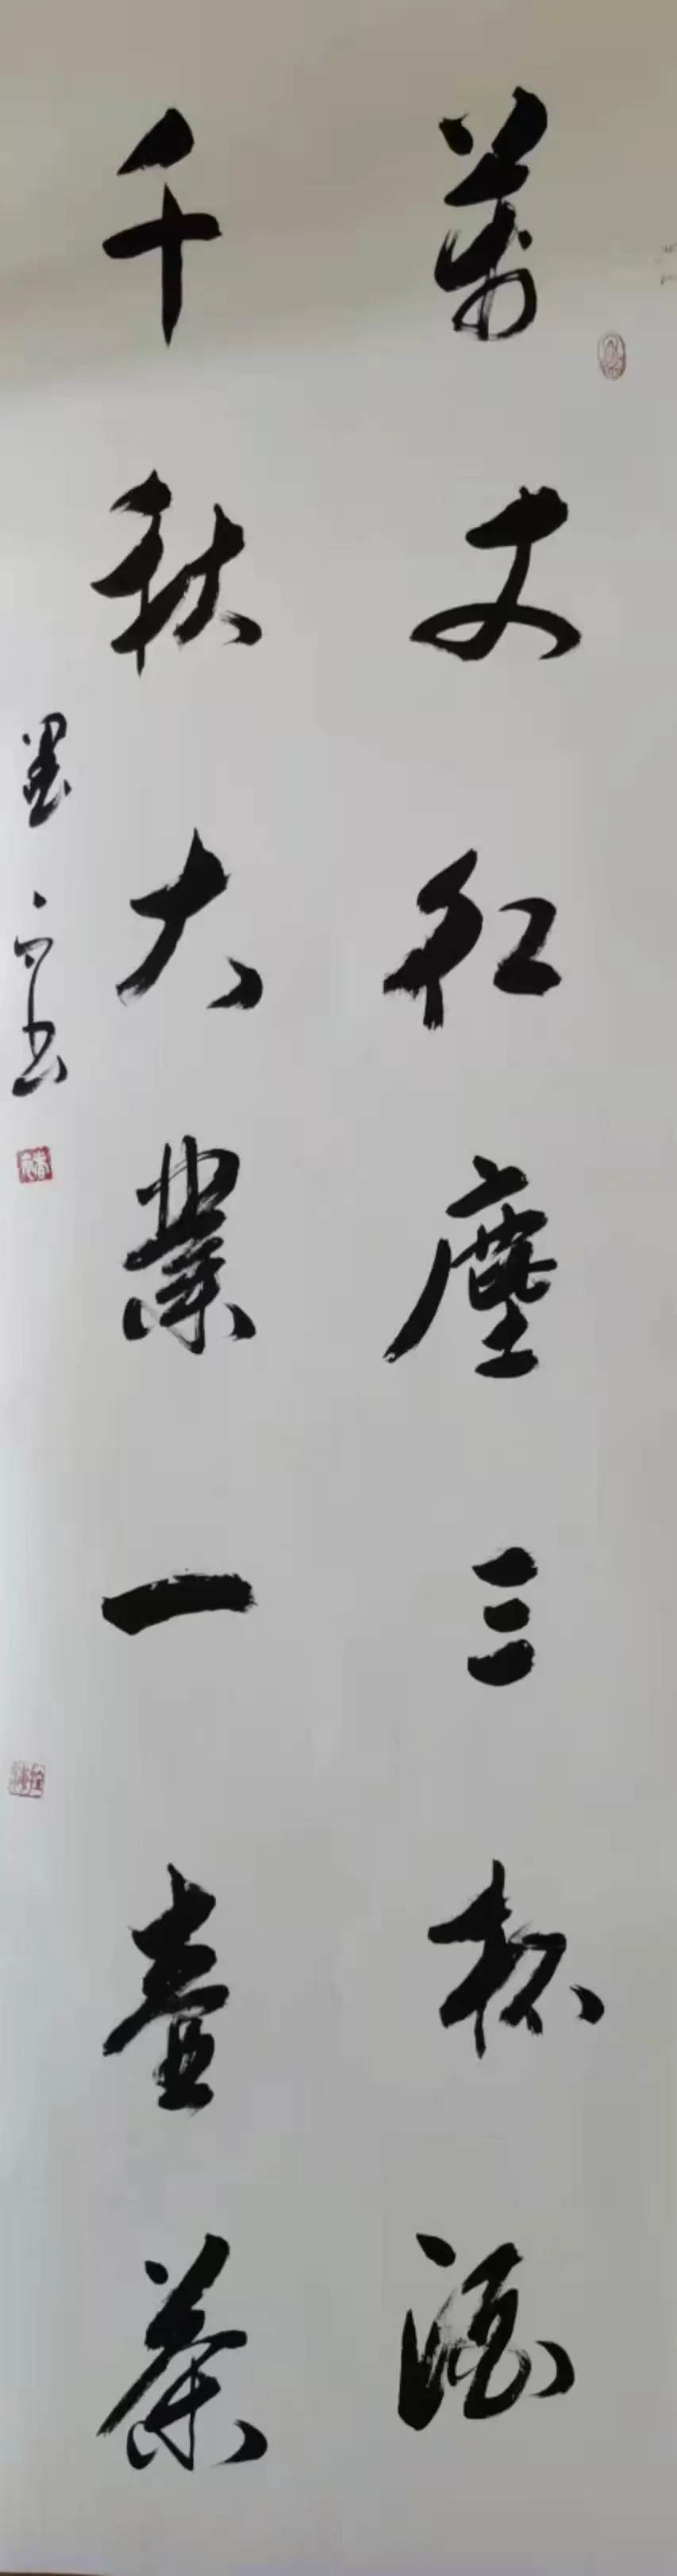 萬丈紅塵三杯酒
千秋大業一壺茶
墨